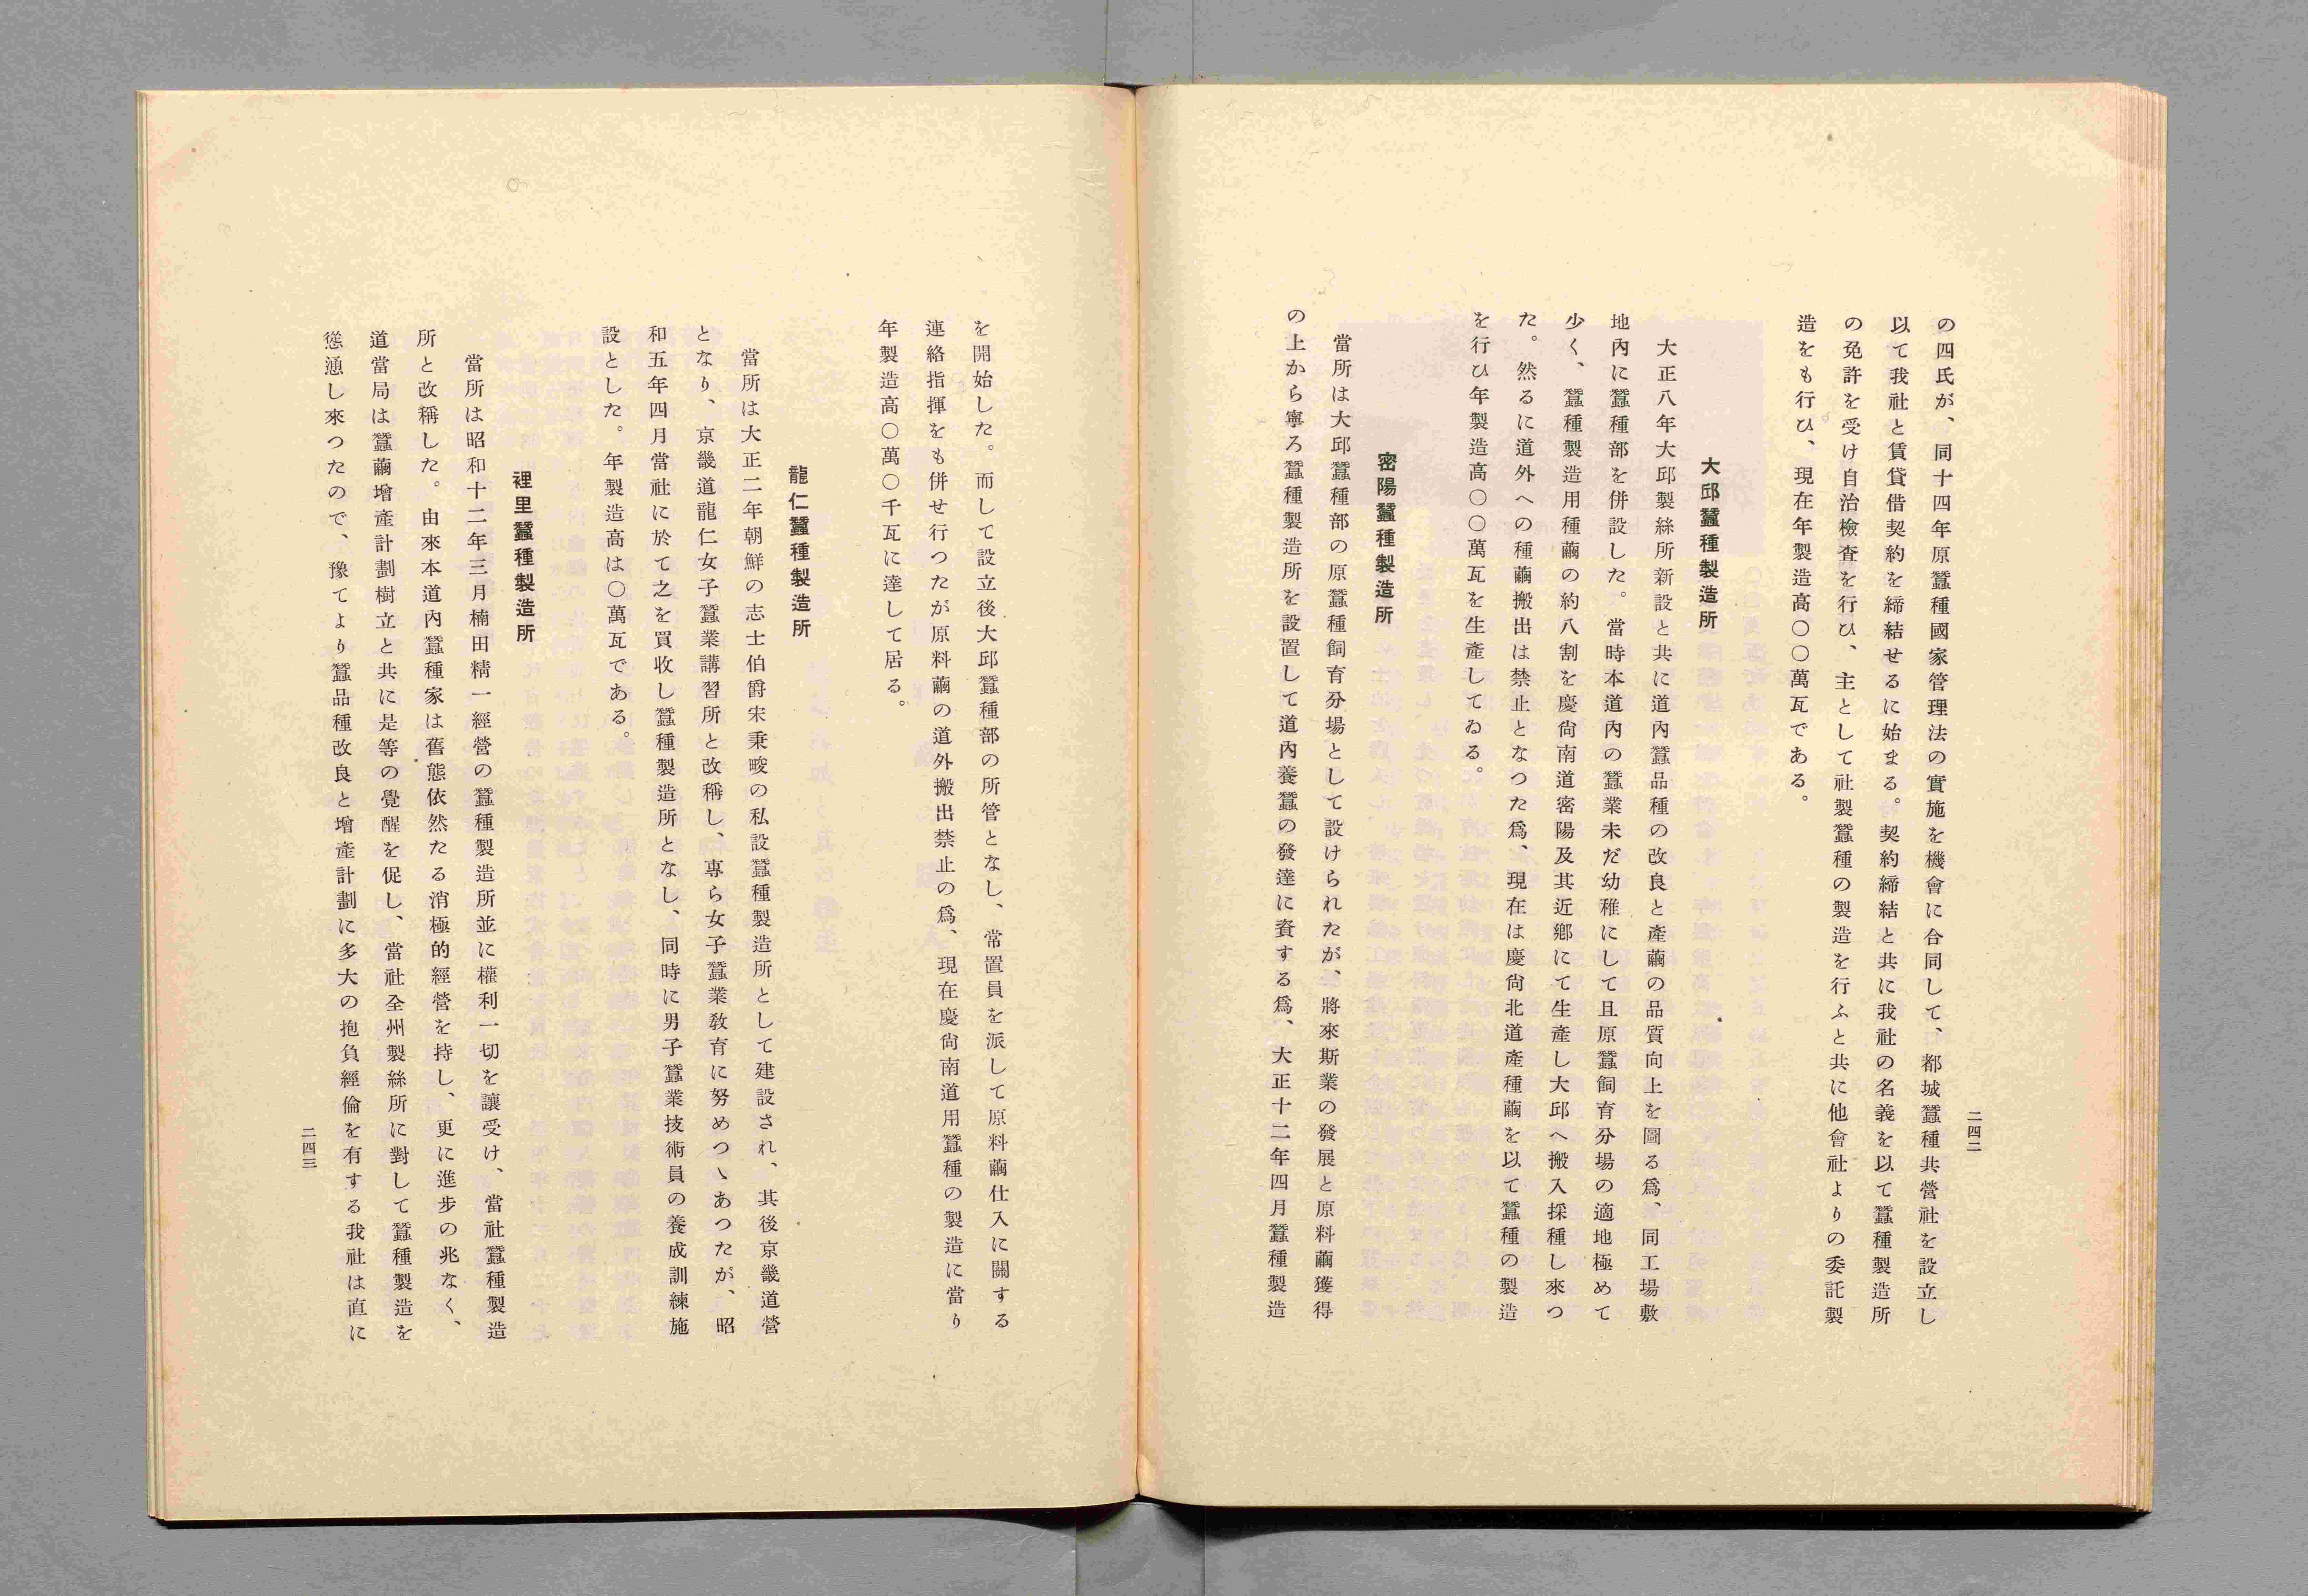 の四氏が、同十四年原蠶種國家管理法の實施を機會に合同して、都城蠶種共營社を設立し
以て我社と賃貸借契約を締結せるに始まる。契約締結と共に我社の名義を以て蠶種製造所
の免許を受け自治檢査を行ひ、主として社製蠶種の製造を行ふと共に他會社よりの委託製
造をも行ひ、現在年製造高〇〇萬瓦である。
大邱蠶種製造所
大正八年大邱製絲所新設と共に道內蠶品種の改良と產繭の品質向上を圖る爲、同工場敷
地內に蠶種部を併設した。當時本道內の蠶業未だ幼稚にして且原蠶飼育分場の適地極めて
少く、蠶種製造用種繭の約八割を慶尙南道密陽及其近鄕にて生產し大邱へ搬入採種し來つ
た。然るに道外への種繭搬出は禁止となつた爲、現在は慶尙北道產種繭を以て蠶種の製造
を行ひ年製造高〇〇萬瓦を生產してゐる。
密陽蠶種製造所
當所は大邱蠶種部の原蠶種飼育分場として設けられたが、將來斯業の發展と原料繭獲得
の上から寧ろ蠶種製造所を設置して道內養蠶の發達に資する爲、大正十二年四月蠶種製造
二四二
を開始した。而して設立後大邱蠶種部の所管となし、常置員を派して原料繭仕入に關する
連絡指揮をも併せ行つたが原料繭の道外搬出禁止の爲、現在慶尙南道用蠶種の製造に當り
年製造高〇萬〇千瓦に達して居る。
龍仁蠶種製造所
當所は大正二年朝鮮の志士伯爵宋秉畯の私設蠶種製造所として建設され、其後京畿道營
となり、京畿道龍仁女子蠶業講習所と改稱し、專ら女子蠶業敎育に努めつゝあつたが、昭
和五年四月當社に於て之を買收し蠶種製造所となし、同時に男子蠶業技術員の養成訓練施
設とした。年製造高は〇萬瓦である。
裡里蠶種製造所
當所は昭和十二年三月楠田精一經營の蠶種製造所並に權利一切を讓受け、當社蠶種製造
所と改稱した。由來本道內蠶種家は舊態依然たる消極的經營を持し、更に進步の兆なく、
道當局は蠶繭增產計劃樹立と共に是等の覺醒を促し、當社全州製絲所に對して蠶種製造を
慫慂し來つたので、豫てより蠶品種改良と增產計劃に多大の抱負經倫を有する我社は直に
二四三